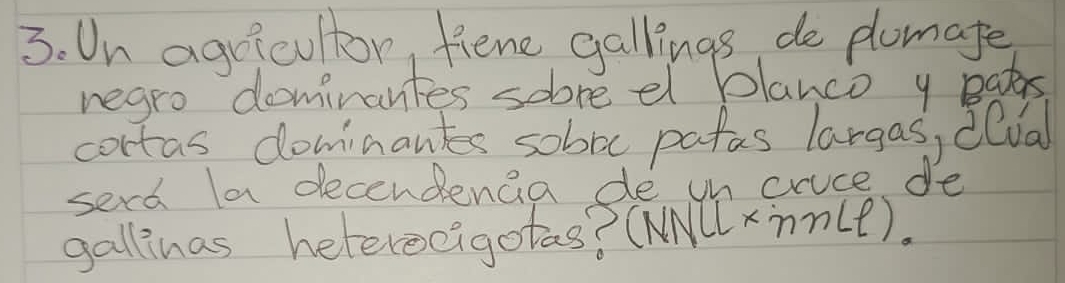 3. Un agricultor, tiene gallinas de plumaje
negro dominantes sobre el blanco y patas
cortas dominantes sobre patas largas, ¿Cuál
será la decendencia de un cruce de
gallinas heterocigotas? (NNLL x nnLl).